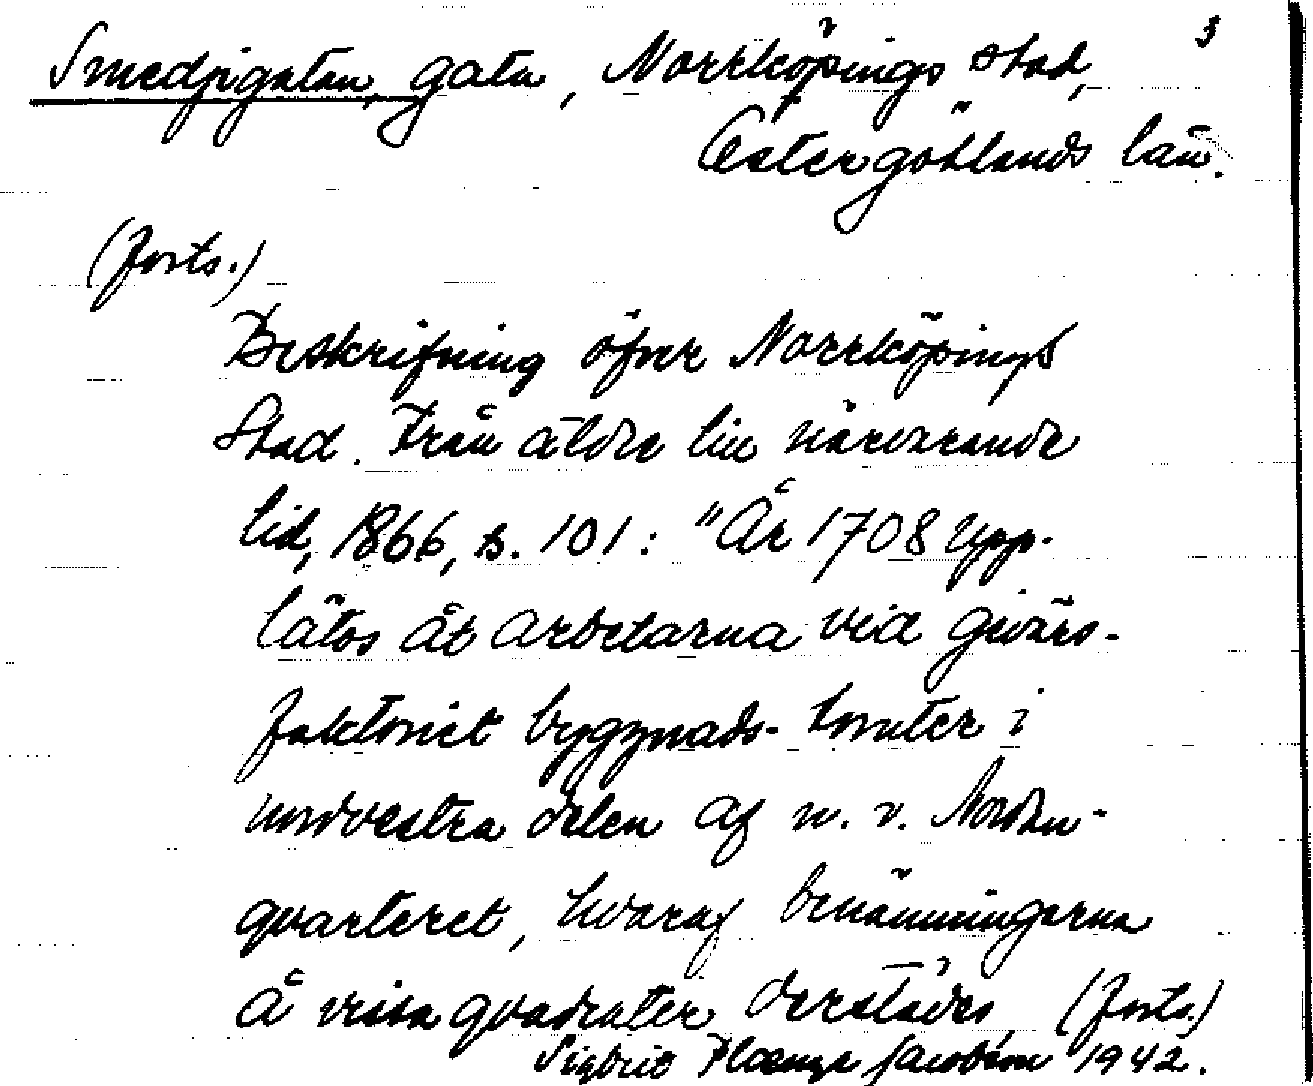 3
Smedjegatan, gata, Norrköpings stad,
Östergötlands län.
(forts.)
Beskrifning öfver Norrköpings
Stad. Från äldre till närvarande
tid, 1866, s. 101: "År 1708 upp-
lätos åt arbetarna vid gevärs-
faktoriet byggnads-tomter i
nordvestra delen af n. v. Nordan-
qvarteret, hvaraf benämningarna
å vissa qvadrater derstädes (forts.)
Sigbrit Plænge Jacobson 1942.